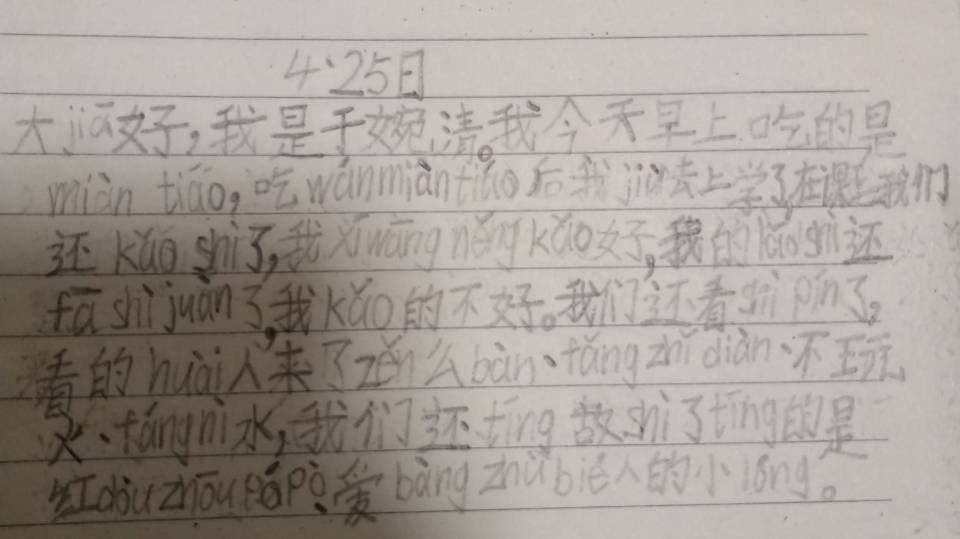 4·25日
大jiā好,我是于婉清。我今天早上吃的是
miàn tiáo,吃wánmiàntiáo后我jiù去上学了,在课上我们
还kǎo shì了,我xīwàng néng kǎo好,我的lǎoshī还
fā shì juàn了,我kǎo的不好。我们还看shì pín了,
看的huài人来了zěn么bàn、fáng zhǐ diàn、不玩
火、fáng nì水,我们还tīng故shi了tīng的是
红dòu zhōu pó po、爱bāng zhù bié人的小lóng。